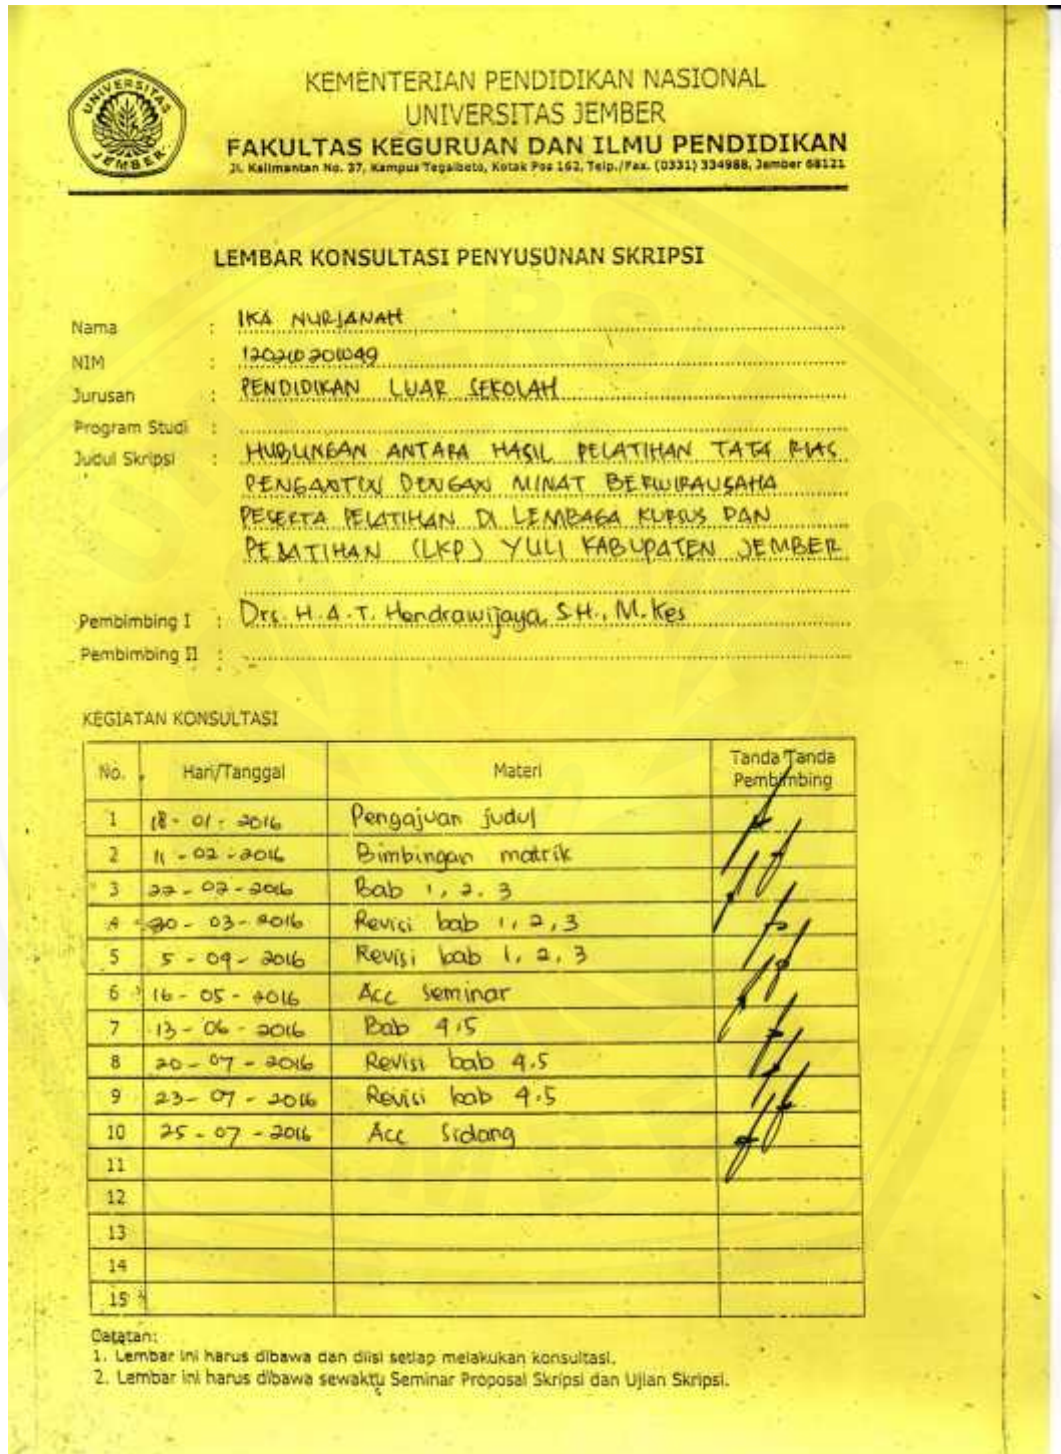 UNIVERSITAS JEMBER
KEMENTERIAN PENDIDIKAN NASIONAL
UNIVERSITAS JEMBER
FAKULTAS KEGURUAN DAN ILMU PENDIDIKAN
Jl. Kalimantan No. 37, Kampus Tegalboto, Kotak Pos 162, Telp./Fax. (0331) 334988, Jember 68121
LEMBAR KONSULTASI PENYUSUNAN SKRIPSI
Nama : IKA NURJANAH
NIM : 120210201049
Jurusan : PENDIDIKAN LUAR SEKOLAH
Program Studi :
Judul Skripsi : HUBUNGAN ANTARA HASIL PELATIHAN TATA RIAS
PENGANTIN DENGAN MINAT BERWIRAUSAHA
PESERTA PELATIHAN DI LEMBAGA KURSUS DAN
PELATIHAN (LKP) YULI KABUPATEN JEMBER
Pembimbing I : Drs. H.A.T. Hendrawijaya, S.H., M.Kes
Pembimbing II :
KEGIATAN KONSULTASI
No. Hari/Tanggal Materi Tanda Tanda Pembimbing
1 18-01-2016 Pengajuan judul
2 11-02-2016 Bimbingan matrik
3 22-02-2016 Bab 1, 2, 3
4 30-03-2016 Revisi bab 1, 2, 3
5 5-04-2016 Revisi bab 1, 2, 3
6 16-05-2016 Acc seminar
7 13-06-2016 Bab 4.5
8 20-07-2016 Revisi bab 4.5
9 23-07-2016 Revisi bab 4.5
10 25-07-2016 Acc Sidang
11
12
13
14
15
Catatan:
1. Lembar ini harus dibawa dan diisi setiap melakukan konsultasi.
2. Lembar ini harus dibawa sewaktu Seminar Proposal Skripsi dan Ujian Skripsi.